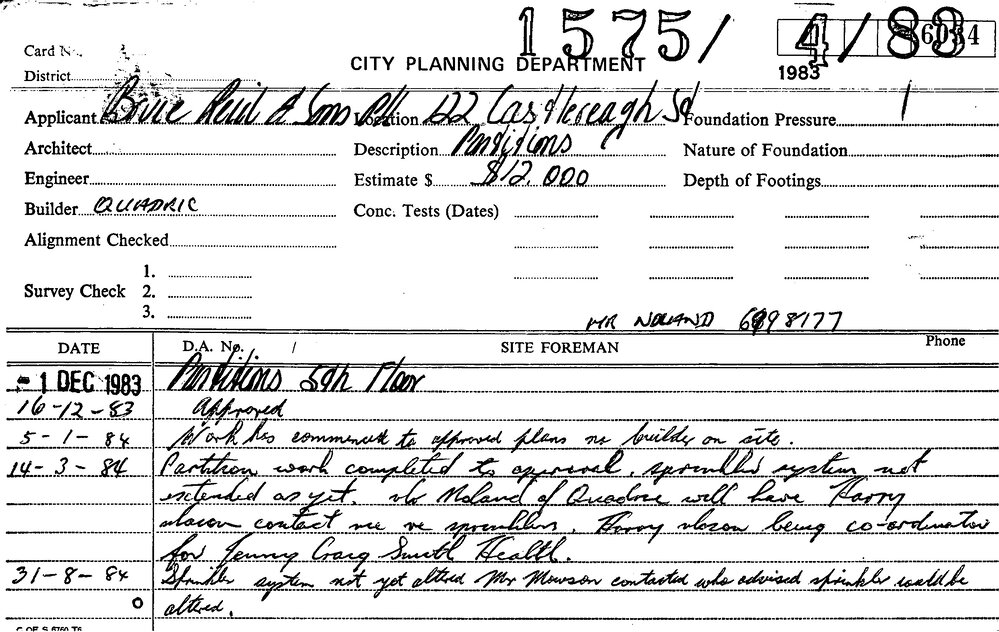 1575/ 4/83
Card No.
CITY PLANNING DEPARTMENT
1983
District
Applicant Bruce Reid & Sons P/L Location 122 Castlereagh St Foundation Pressure
Architect Description Partitions Nature of Foundation
Engineer Estimate $ $12,000 Depth of Footings
Builder QUADRIC Conc. Tests (Dates)
Alignment Checked
1.
Survey Check 2.
3.
MR NOLAND 6998177
DATE D.A. No. / SITE FOREMAN Phone
- 1 DEC 1983 Partitions 5th Floor
16-12-83 Approved
5-1-84 Work has commenced to approved plans no builder on site.
14-3-84 Partition work completed to approval, sprinkler system not
extended as yet. Mr Noland of Quadric will have Harry
contact me re sprinklers. Harry being co-ordinator
for Jenny Craig Health.
31-8-84 Sprinkler system not yet altered Mr Mowson contacted who advised sprinkler would be
altered.
C OF S 6760 T6